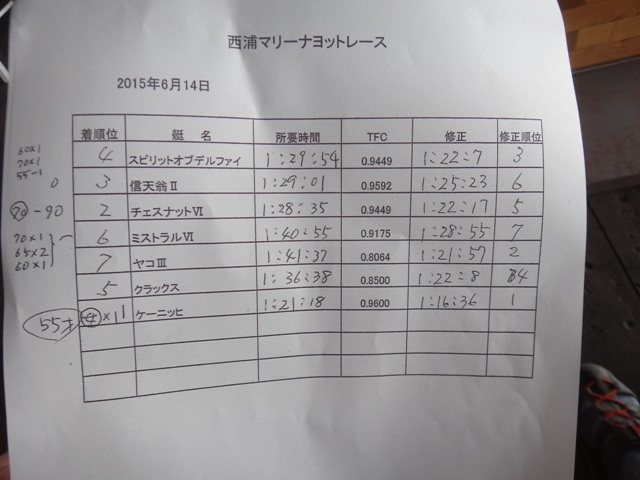 西浦マリーナヨットレース
2015年6月14日
着順位 艇 名 所要時間 TFC 修正 修正順位
4 スピリットオブデルファイ 1:29:54 0.9449 1:22:7 3
3 信天翁Ⅱ 1:29:01 0.9592 1:25:23 6
2 チェスナットⅥ 1:28:35 0.9449 1:22:17 5
6 ミストラルⅥ 1:40:55 0.9175 1:28:55 7
7 ヤコⅢ 1:41:37 0.8064 1:21:57 2
5 クラックス 1:36:38 0.8500 1:22:8 4
1 ケーニッヒ 1:21:18 0.9600 1:16:36 1
60×1
70×1
55-1
0
70-90
70×1
65×2
60×1
55才